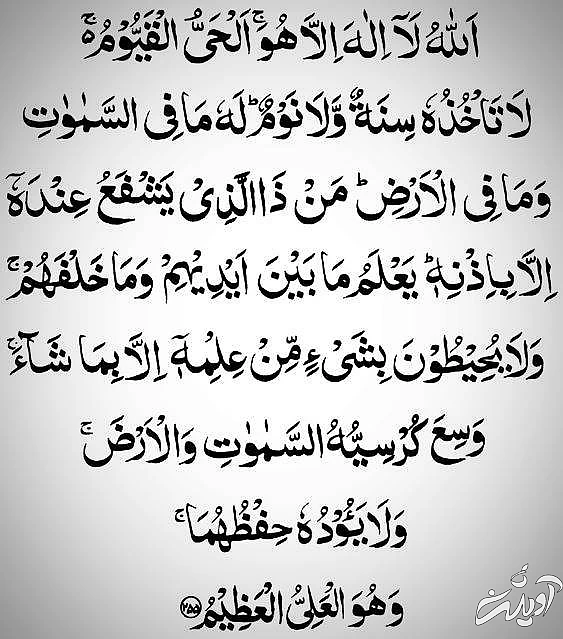 اَللّٰهُ لَآ اِلٰهَ اِلَّا هُوَ ۚ اَلْحَیُّ الْقَیُّوْمُ ۚ۬
لَا تَاْخُذُهٗ سِنَةٌ وَّلَا نَوْمٌ ؕ لَهٗ مَا فِی السَّمٰوٰتِ
وَمَا فِی الْاَرْضِ ؕ مَنْ ذَا الَّذِیْ یَشْفَعُ عِنْدَهٗۤ
اِلَّا بِاِذْنِهٖ ؕ یَعْلَمُ مَا بَیْنَ اَیْدِیْهِمْ وَمَا خَلْفَهُمْ ۚ
وَلَا یُحِیْطُوْنَ بِشَیْءٍ مِّنْ عِلْمِهٖۤ اِلَّا بِمَا شَآءَ ۚ
وَسِعَ كُرْسِیُّهُ السَّمٰوٰتِ وَالْاَرْضَ ۚ
وَلَا یَـُٔوْدُهٗ حِفْظُهُمَا ۚ
وَهُوَ الْعَلِیُّ الْعَظِیْمُ ۲۵۵